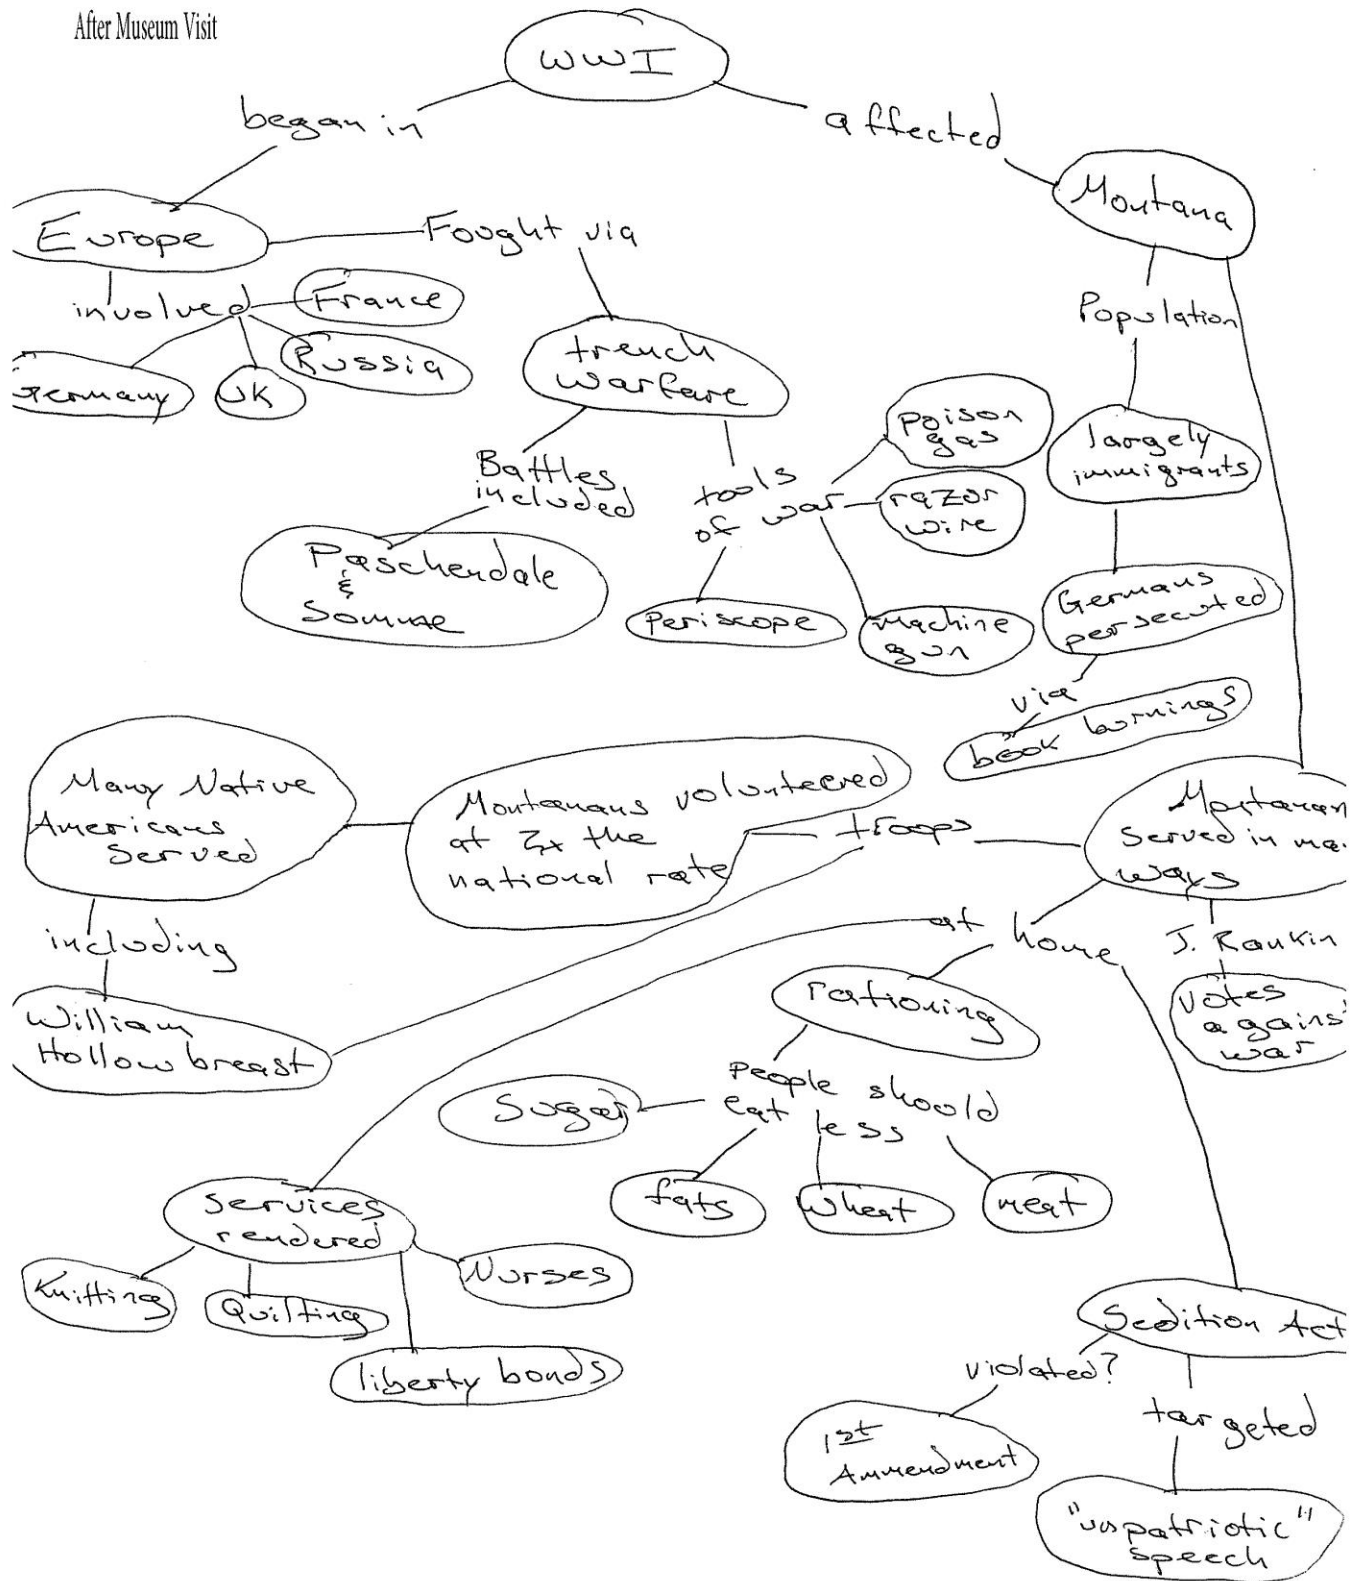 After Museum Visit
WWI
began in
affected
Montana
Europe
Fought via
involved
France
Population
Russia
trench
warfare
Germany
UK
poison
gas
largely
immigrants
Battles
included
tools
of war
razor
wire
Paschendale
&
Somme
Periscope
machine
gun
Germans
persecuted
via
book burnings
Many Native
Americans
Served
Montanans volunteered
at 2x the
national rate
troops
Montanan
Served in ma
ways
including
at home
J. Rankin
William
Hollow breast
rationing
votes
agains
war
People should
eat less
Sugar
fats
wheat
meat
Services
rendered
Nurses
Knitting
Quilting
liberty bonds
Sedition Act
violated?
targeted
1st
Ammendment
"unpatriotic"
speech